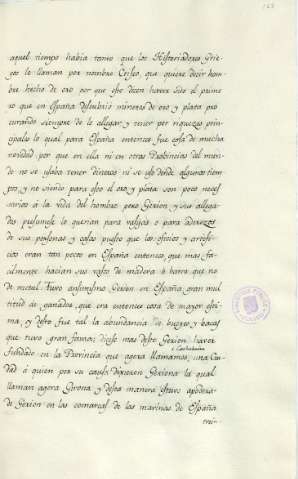 aquel tiempo habia tanto que los Historiadores Grie-
gos le llaman por nombre Criseo, que quiere decir hom-
bre hecho de oro por que este dicen haver sido el prime-
ro que en España descubrio mineros de oro y plata pro-
curando siempre de le allegar y tener por riquezas prin-
cipales lo qual para España entonces fue cosa de mucha
novedad por que en ella ni en otras Probincias del mun-
do no se usaba tener dineros ni se uso dende algunos tiem-
pos, y no siendo para esto el oro y plata son poco neces-
sarios á la vida del hombre pero Gerion y sus allega-
dos solamente lo querian para vasijas o para aderezos
de sus personas y casas puesto que los oficios y artefi-
cios eran tan pocos en España entonces, que mas fa-
cilmente hacian sus vasos de madera ó barro que no
de metal. Tuvo ansimismo Gerion en España gran mul-
titud de ganados, que era entonces cosa de mayor esti-
ma, y desto fue tal la abundancia de bueyes y bacas
que tuvo gran fama; dicese mas deste Gerion haver
fundado en la Provincia que agora llamamos una Ciu-
dad á quien por su causa dixeron Geriona la qual
llaman agora Girona y desta manera estuvo apodera-
do Gerion en las comarcas de las marinas de España